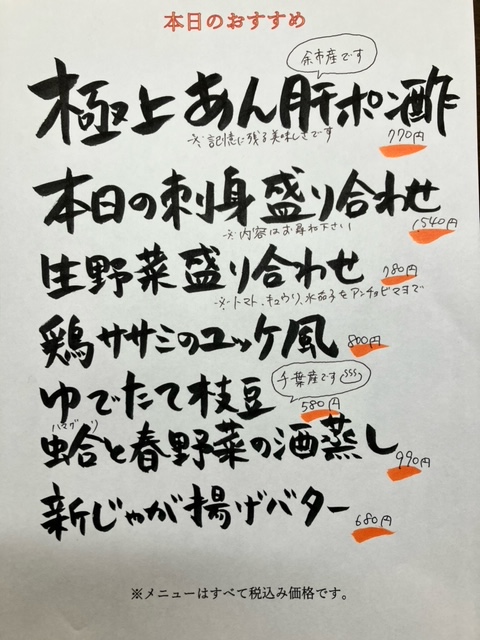 本日のおすすめ
余市産です
極上あん肝ポン酢
※記憶に残る美味しさです
770円
本日の刺身盛り合わせ
※内容はお尋ね下さい
1540円
生野菜盛り合わせ
780円
※トマト、キュウリ、水茄子をアンチョビマヨで
鶏ササミのユッケ風
800円
千葉産です
ゆでたて枝豆
580円
ハマグリ
蛤と春野菜の酒蒸し
990円
新じゃが揚げバター
680円
※メニューはすべて税込み価格です。